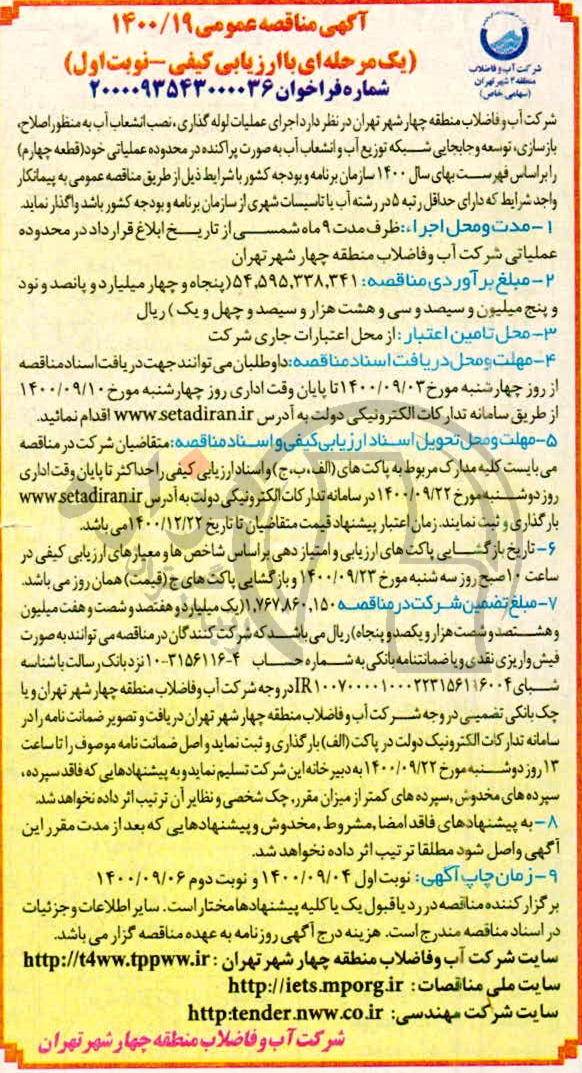 آگهی مناقصه عمومی ۱۴۰۰/۱۹
(یک مرحله ای با ارزیابی کیفی – نوبت اول)
شماره فراخوان ۲۰۰۰۰۹۳۵۴۳۰۰۰۰۳۶
شرکت آب و فاضلاب
منطقه ۴ شهر تهران
(سهامی خاص)
شرکت آب و فاضلاب منطقه چهار شهر تهران در نظر دارد اجرای عملیات لوله گذاری ، نصب انشعاب آب به منظور اصلاح،
بازسازی، توسعه و جابجایی شبکه توزیع آب و انشعاب آب به صورت پراکنده در محدوده عملیاتی خود (قطعه چهارم)
را بر اساس فهرست بهای سال ۱۴۰۰ سازمان برنامه و بودجه کشور با شرایط ذیل از طریق مناقصه عمومی به پیمانکار
واجد شرایط که دارای حداقل رتبه ۵ در رشته آب یا تاسیسات شهری از سازمان برنامه و بودجه کشور باشد واگذار نماید.
۱- مدت و محل اجراء: ظرف مدت ۹ ماه شمسی از تاریخ ابلاغ قرارداد در محدوده
عملیاتی شرکت آب و فاضلاب منطقه چهار شهر تهران
۲- مبلغ برآوردی مناقصه: ۵۴,۵۹۵,۳۳۸,۳۴۱ (پنجاه و چهار میلیارد و پانصد و نود
و پنج میلیون و سیصد و سی و هشت هزار و سیصد و چهل و یک ) ریال
۳- محل تامین اعتبار : از محل اعتبارات جاری شرکت
۴- مهلت و محل دریافت اسناد مناقصه: داوطلبان می توانند جهت دریافت اسناد مناقصه
از روز چهارشنبه مورخ ۱۴۰۰/۰۹/۰۳ تا پایان وقت اداری روز چهارشنبه مورخ ۱۴۰۰/۰۹/۱۰
از طریق سامانه تدارکات الکترونیکی دولت به آدرس www.setadiran.ir اقدام نمائید.
۵- مهلت و محل تحویل اسناد ارزیابی کیفی و اسناد مناقصه: متقاضیان شرکت در مناقصه
می بایست کلیه مدارک مربوط به پاکت های (الف، ب، ج) و اسناد ارزیابی کیفی را حداکثر تا پایان وقت اداری
روز دوشنبه مورخ ۱۴۰۰/۰۹/۲۲ در سامانه تدارکات الکترونیکی دولت به آدرس www.setadiran.ir
بارگذاری و ثبت نمایند. زمان اعتبار پیشنهاد قیمت متقاضیان تا تاریخ ۱۴۰۰/۱۲/۲۲ می باشد.
۶- تاریخ بازگشایی پاکت های ارزیابی و امتیاز دهی بر اساس شاخص ها و معیارهای ارزیابی کیفی در
ساعت ۱۰ صبح روز سه شنبه مورخ ۱۴۰۰/۰۹/۲۳ و بازگشایی پاکت های ج (قیمت) همان روز می باشد.
۷- مبلغ تضمین شرکت در مناقصه ۱,۷۶۷,۸۶۰,۱۵۰ (یک میلیارد و هفتصد و شصت و هفت میلیون
و هشتصد و شصت هزار و یکصد و پنجاه) ریال می باشد که شرکت کنندگان در مناقصه می توانند به صورت
فیش واریزی نقدی و یا ضمانتنامه بانکی به شماره حساب ۴-۳۱۵۶۱۱۶-۱۰ نزد بانک رسالت با شناسه
شبای IR۱۰۰۷۰۰۰۰۱۰۰۰۲۲۳۱۵۶۱۱۶۰۰۴ در وجه شرکت آب و فاضلاب منطقه چهار شهر تهران و یا
چک بانکی تضمینی در وجه شرکت آب و فاضلاب منطقه چهار شهر تهران دریافت و تصویر ضمانت نامه را در
سامانه تدارکات الکترونیک دولت در پاکت (الف) بارگذاری و ثبت نماید و اصل ضمانت نامه موصوف را تا ساعت
۱۳ روز دوشنبه مورخ ۱۴۰۰/۰۹/۲۲ به دبیرخانه این شرکت تسلیم نماید و به پیشنهادهایی که فاقد سپرده،
سپرده های مخدوش ,سپرده های کمتر از میزان مقرر, چک شخصی و نظایر آن ترتیب اثر داده نخواهد شد.
۸- به پیشنهادهای فاقد امضا ,مشروط , مخدوش و پیشنهادهایی که بعد از مدت مقرر این
آگهی واصل شود مطلقا ترتیب اثر داده نخواهد شد.
۹- زمان چاپ آگهی: نوبت اول ۱۴۰۰/۰۹/۰۴ و نوبت دوم ۱۴۰۰/۰۹/۰۶
برگزار کننده مناقصه در رد یا قبول یک یا کلیه پیشنهادها مختار است. سایر اطلاعات و جزئیات
در اسناد مناقصه مندرج است. هزینه درج آگهی روزنامه به عهده مناقصه گزار می باشد.
سایت شرکت آب و فاضلاب منطقه چهار شهر تهران : http://t4ww.tppww.ir
سایت ملی مناقصات: http://iets.mporg.ir
سایت شرکت مهندسی: http:tender.nww.co.ir
شرکت آب و فاضلاب منطقه چهار شهر تهران